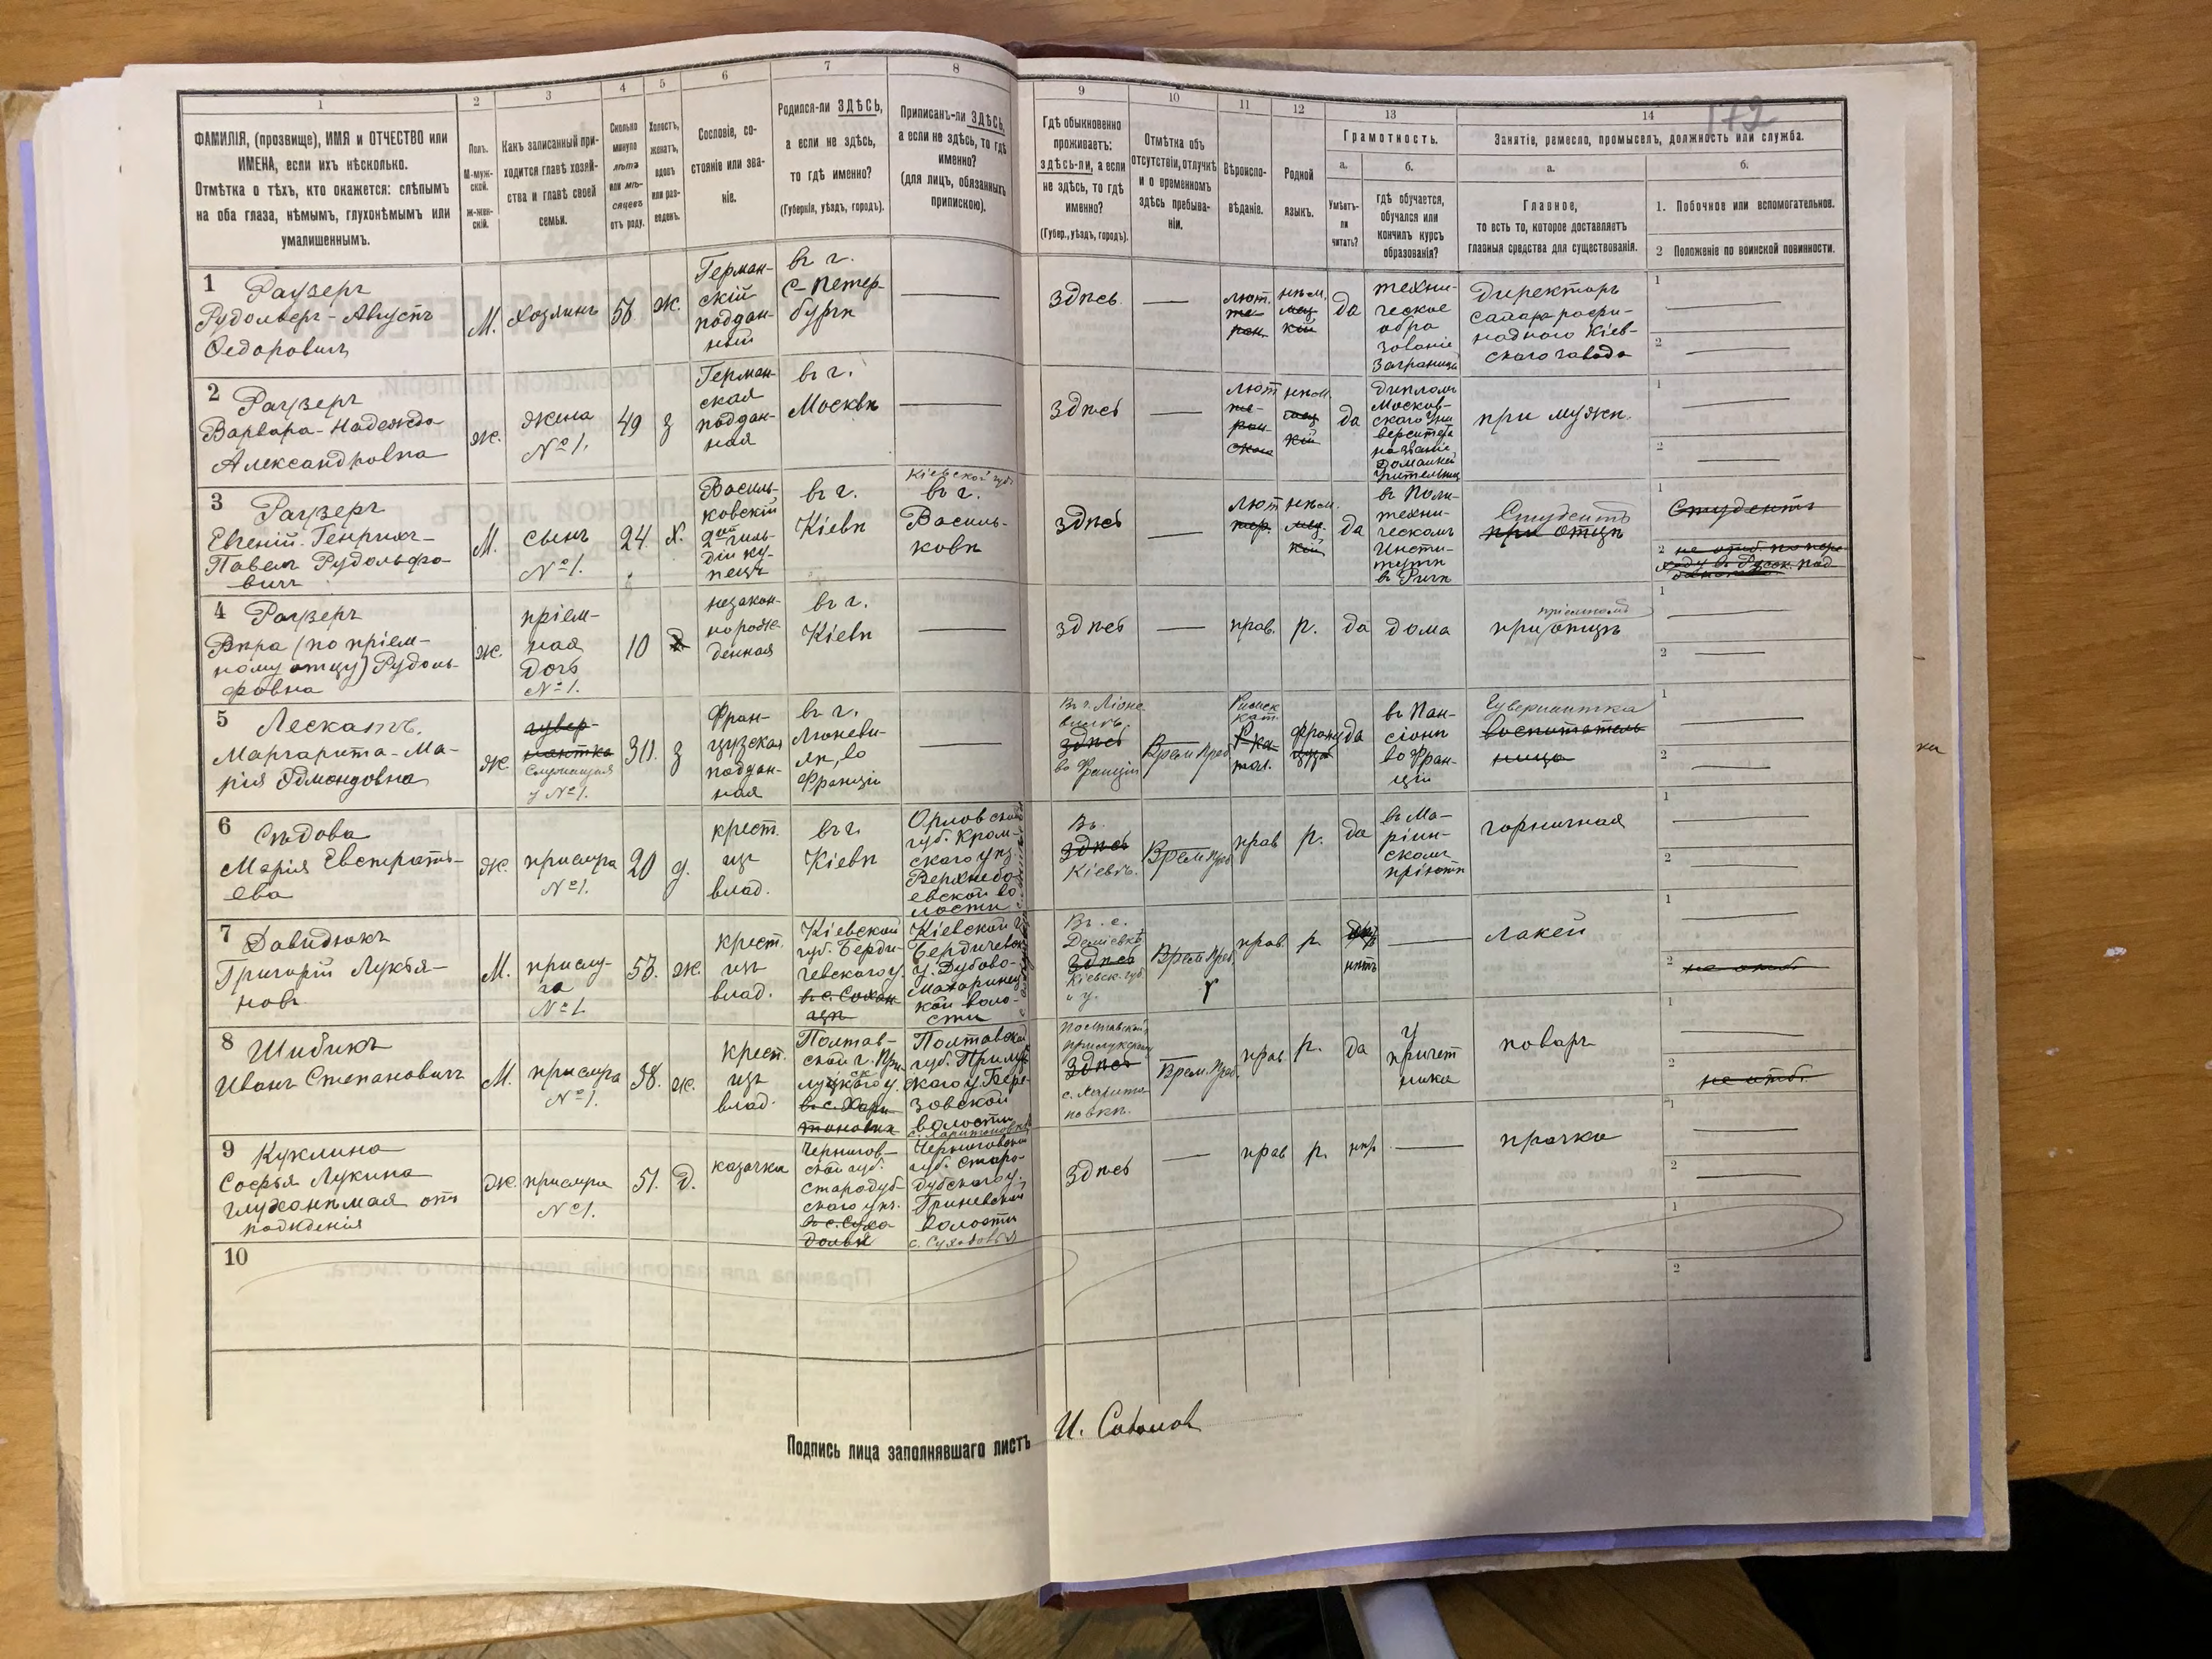 172
1
ФАМИЛІЯ, (прозвище), ИМЯ и ОТЧЕСТВО или
ИМЕНА, если ихъ нѣсколько.
Отмѣтка о тѣхъ, кто окажется: слѣпымъ
на оба глаза, нѣмымъ, глухонѣмымъ или
умалишеннымъ.
2
Полъ.
М-муж-
ской.
Ж-жен-
скій.
3
Какъ записанный при-
ходится главѣ хозяй-
ства и главѣ своей
семьи.
4
Сколько
минуло
лѣтъ
или мѣ-
сяцевъ
отъ роду.
5
Холостъ,
женатъ,
вдовъ
или раз-
веденъ.
6
Сословіе, со-
стояніе или зва-
ніе.
7
Родился-ли ЗДѢСЬ,
а если не здѣсь,
то гдѣ именно?
(Губернія, уѣздъ, городъ).
8
Приписанъ-ли ЗДѢСЬ,
а если не здѣсь, то гдѣ
именно?
(для лицъ, обязанныхъ
припискою).
9
Гдѣ обыкновенно
проживаетъ:
здѣсь-ли, а если
не здѣсь, то гдѣ
именно?
(Губер., уѣздъ, городъ).
10
Отмѣтка объ
отсутствіи, отлучкѣ
и о временномъ
здѣсь пребыва-
ніи.
11
Вѣроиспо-
вѣданіе.
12
Родной
языкъ.
13
Грамотность.
а.
Умѣетъ-
ли
читать?
б.
гдѣ обучается,
обучался или
кончилъ курсъ
образованія?
14
Занятіе, ремесло, промыселъ, должность или служба.
а.
Главное,
то есть то, которое доставляетъ
главныя средства для существованія.
б.
1. Побочное или вспомогательное.
2 Положеніе по воинской повинности.
1
Раузеръ
Рудольфъ-Августъ
Федоровичъ
М.
хозяинъ
58
ж.
Герман-
скій
поддан-
ный
въ г.
С-Петер-
бургѣ
здѣсь
лют.
нѣм.
да
техни-
ческое
обра
зованіе
заграницей
директоръ
сахара рафи-
наднаго Кіев-
скаго завода
1
2
2
Раузеръ
Варвара-Надежда
Александровна
ж.
жена
№1.
49
з
Герман-
ская
поддан-
ная
въ г.
Москвѣ
здѣсь
лют
нѣм.
да
диплом
Москов-
скаго Уни
верситета
на званіе
Домашней
Учительницы
при мужѣ.
1
2
3
Раузеръ
Евгеній-Генрихъ-
Павелъ Рудольфо-
вичъ
М.
сынъ
№1.
24.
х.
Василь-
ковскій
2ой гиль-
діи ку-
пецъ
въ г.
Кіевѣ
Кіевской губ.
въ г.
Василь-
ковѣ
здѣсь
лют
нѣм.
да
въ Поли-
техни-
ческомъ
Инсти-
тутѣ
въ Ригѣ
Студентъ
при отцѣ
1
Студентъ
2
4
Раузеръ
Вѣра (по пріем-
ному отцу) Рудоль-
фовна
ж.
пріем-
ная
дочь
№1.
10
незакон-
норож-
денная
въ г.
Кіевѣ
здѣсь
прав.
р.
да
дома
пріемномъ
при отцѣ
1
2
5
Лескатъ
Маргарита-Ма-
рія Эдмондовна
ж.
гувер-
нантка
Служащая
у №1.
30.
з
Фран-
цузская
поддан-
ная
въ г.
Люневи-
лѣ, во
Франціи
здѣсь
во Франціи
Врем. Преб.
да
въ Пан-
сіонѣ
во Фран-
ціи
Гувернантка
воспитатель
ница
1
2
6
Сѣдова
Марія Евстрать-
ева
ж.
прислуга
№1.
20
д.
крест.
изъ
влад.
въ г.
Кіевѣ
Орловской
губ. Кром-
скаго уѣз.
во
лости
Въ
здѣсь
Кіевѣ.
Врем. Преб
прав
р.
да
въ Ма-
ріин-
скомъ
пріютѣ
горничная
1
2
7
Давидюкъ
Григорій Лукья-
новъ
М.
прислу-
га
№1.
53.
ж.
крест.
изъ
влад.
Кіевской
губ. Берди-
чевскаго у.
Кіевской г.
Бердичевск.
у. Дубово-
Махаринец-
кой воло-
сти
Въ с.
Деміевкѣ
здѣсь
Кіевск. губ.
и у.
Врем. Преб
прав
р.
нѣтъ
лакей
1
2
8
Шибикъ
Иванъ Степановичъ
М.
прислуга
№1.
38.
ж.
крест.
изъ
влад.
Полтав-
ской г. При-
луцкаго у.
Полтавской
губ. Прилуц-
каго у. Бере-
зовской
волости
с. Харитоновки
Полтавской
Прилукскаго
здѣсь
с. Харито
новкѣ.
Врем. Преб.
прав
р.
да
у
причет
ника
поваръ
1
2
9
Куклина
Софья Лукина
глухонѣмая отъ
рожденія
ж.
прислуга
№1.
51.
д.
казачка
Чернигов-
ской губ.
Стародуб-
скаго уѣз.
Черниговской
губ. Старо-
дубскаго у.
Гриневской
волости
здѣсь
прав
р.
нѣтъ
прачка
1
2
10
1
2
Подпись лица заполнявшаго листъ